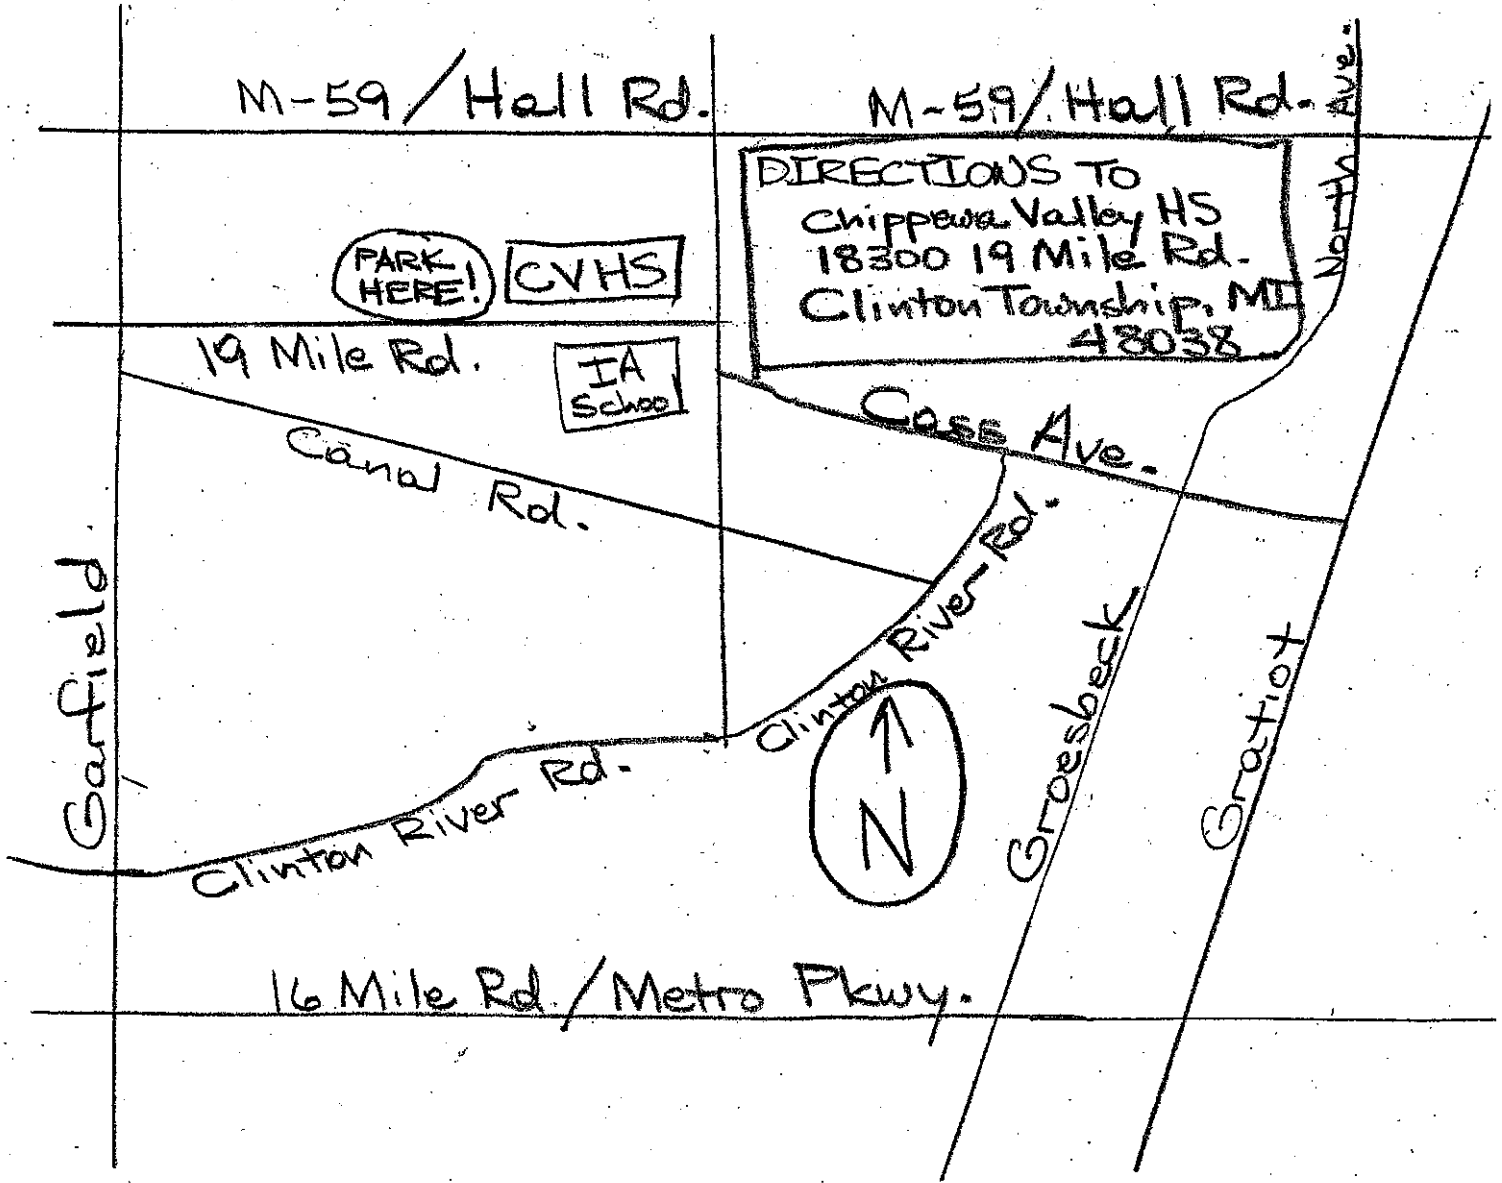 M-59/Hall Rd.
M-59/Hall Rd.
North Ave.
DIRECTIONS TO
Chippewa Valley HS
18300 19 Mile Rd.
Clinton Township, MI
48038
PARK
HERE!
CVHS
19 Mile Rd.
IA
Schoo
Cass Ave.
Canal Rd.
Clinton River Rd.
Garfield
Groesbeck
Gratiot
N
Clinton River Rd.
16 Mile Rd./Metro Pkwy.